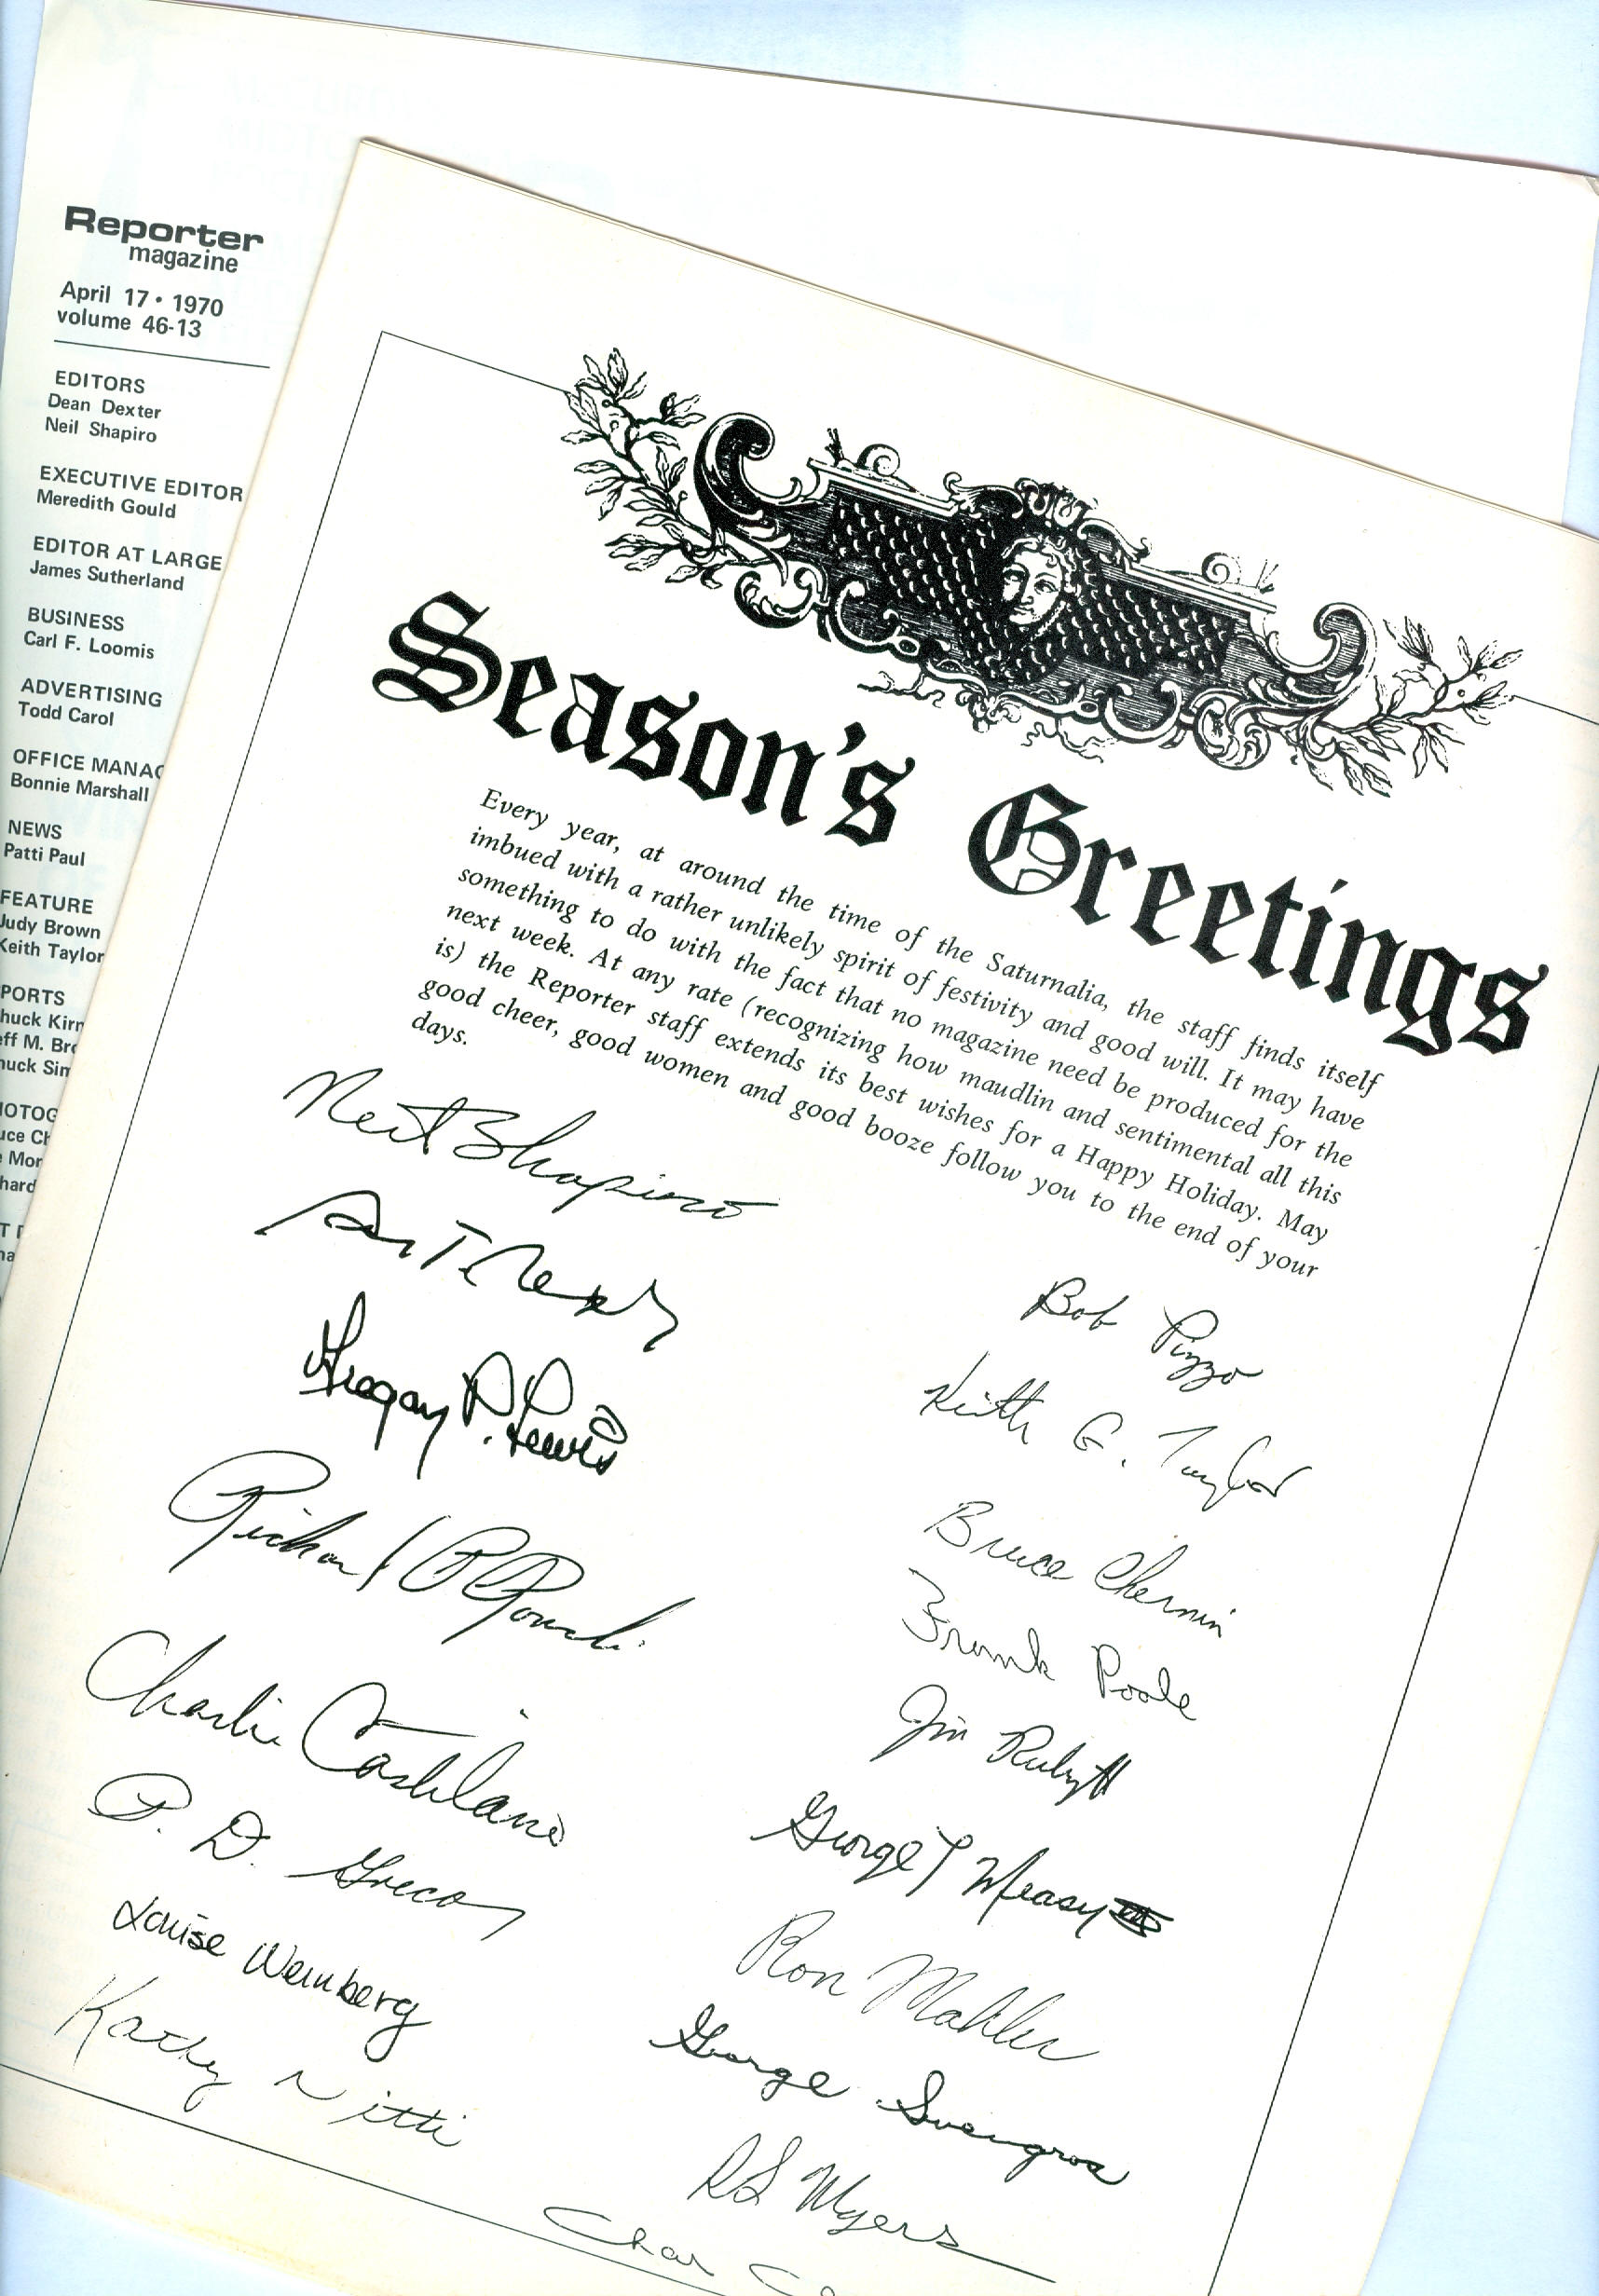 Reporter
magazine
April 17 • 1970
volume 46-13
EDITORS
Dean Dexter
Neil Shapiro
EXECUTIVE EDITOR
Meredith Gould
EDITOR AT LARGE
James Sutherland
BUSINESS
Carl F. Loomis
ADVERTISING
Todd Carol
OFFICE MANAG
Bonnie Marshall
NEWS
Patti Paul
FEATURE
Judy Brown
Keith Taylor
PORTS
huck Kirn
eff M. Bro
huck Sim
HOTOG
uce Ch
e Mor
hard
Season's Greetings
Every year, at around the time of the Saturnalia, the staff finds itself
imbued with a rather unlikely spirit of festivity and good will. It may have
something to do with the fact that no magazine need be produced for the
next week. At any rate (recognizing how maudlin and sentimental all this
is) the Reporter staff extends its best wishes for a Happy Holiday. May
good cheer, good women and good booze follow you to the end of your
days.
Neil Shapiro
Gregory P. Lewis
Richard
Charlie
P. D. Greco
Louise Weinberg
Kathy Nitti
Bob Pizzo
Keith G. Taylor
Bruce Chernin
Frank Poole
Jim
George T
Ron Mahler
George
RS Myers
Char